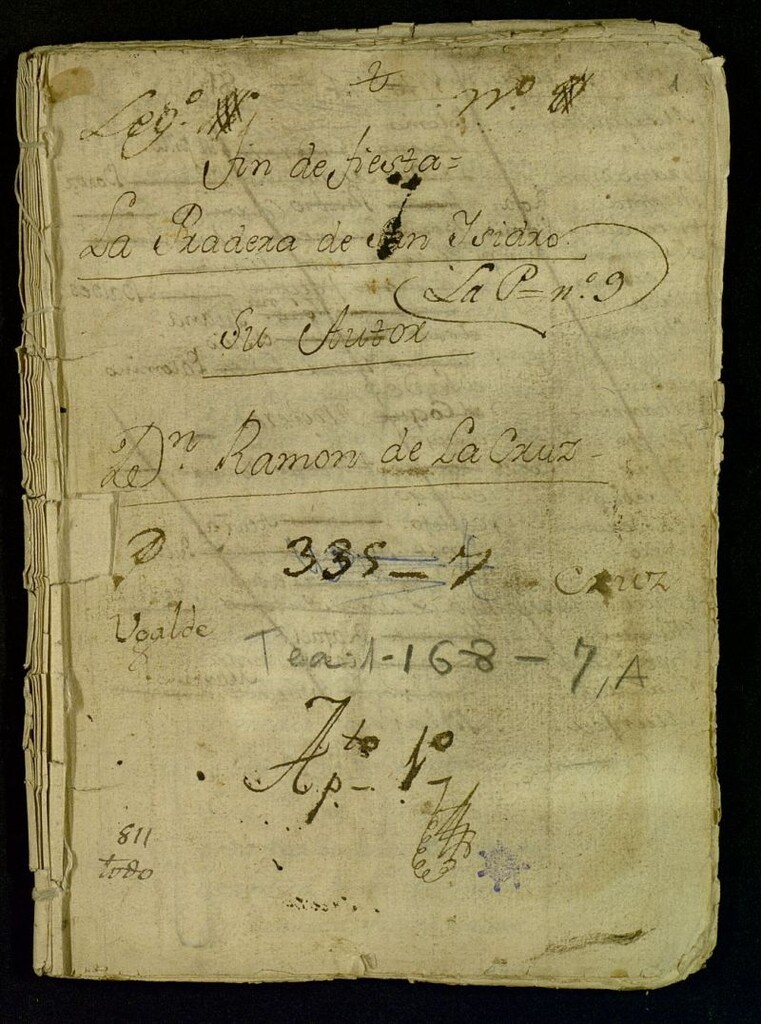 Leg.º nº 1
Fin de fiesta=
La Pradera de San Isidro.
La P= nº. 9
Su Autor
Dn. Ramon de La Cruz
335-7 Cruz
Ugalde
Tea.1-168-7, A
Apto 1º
811
todo